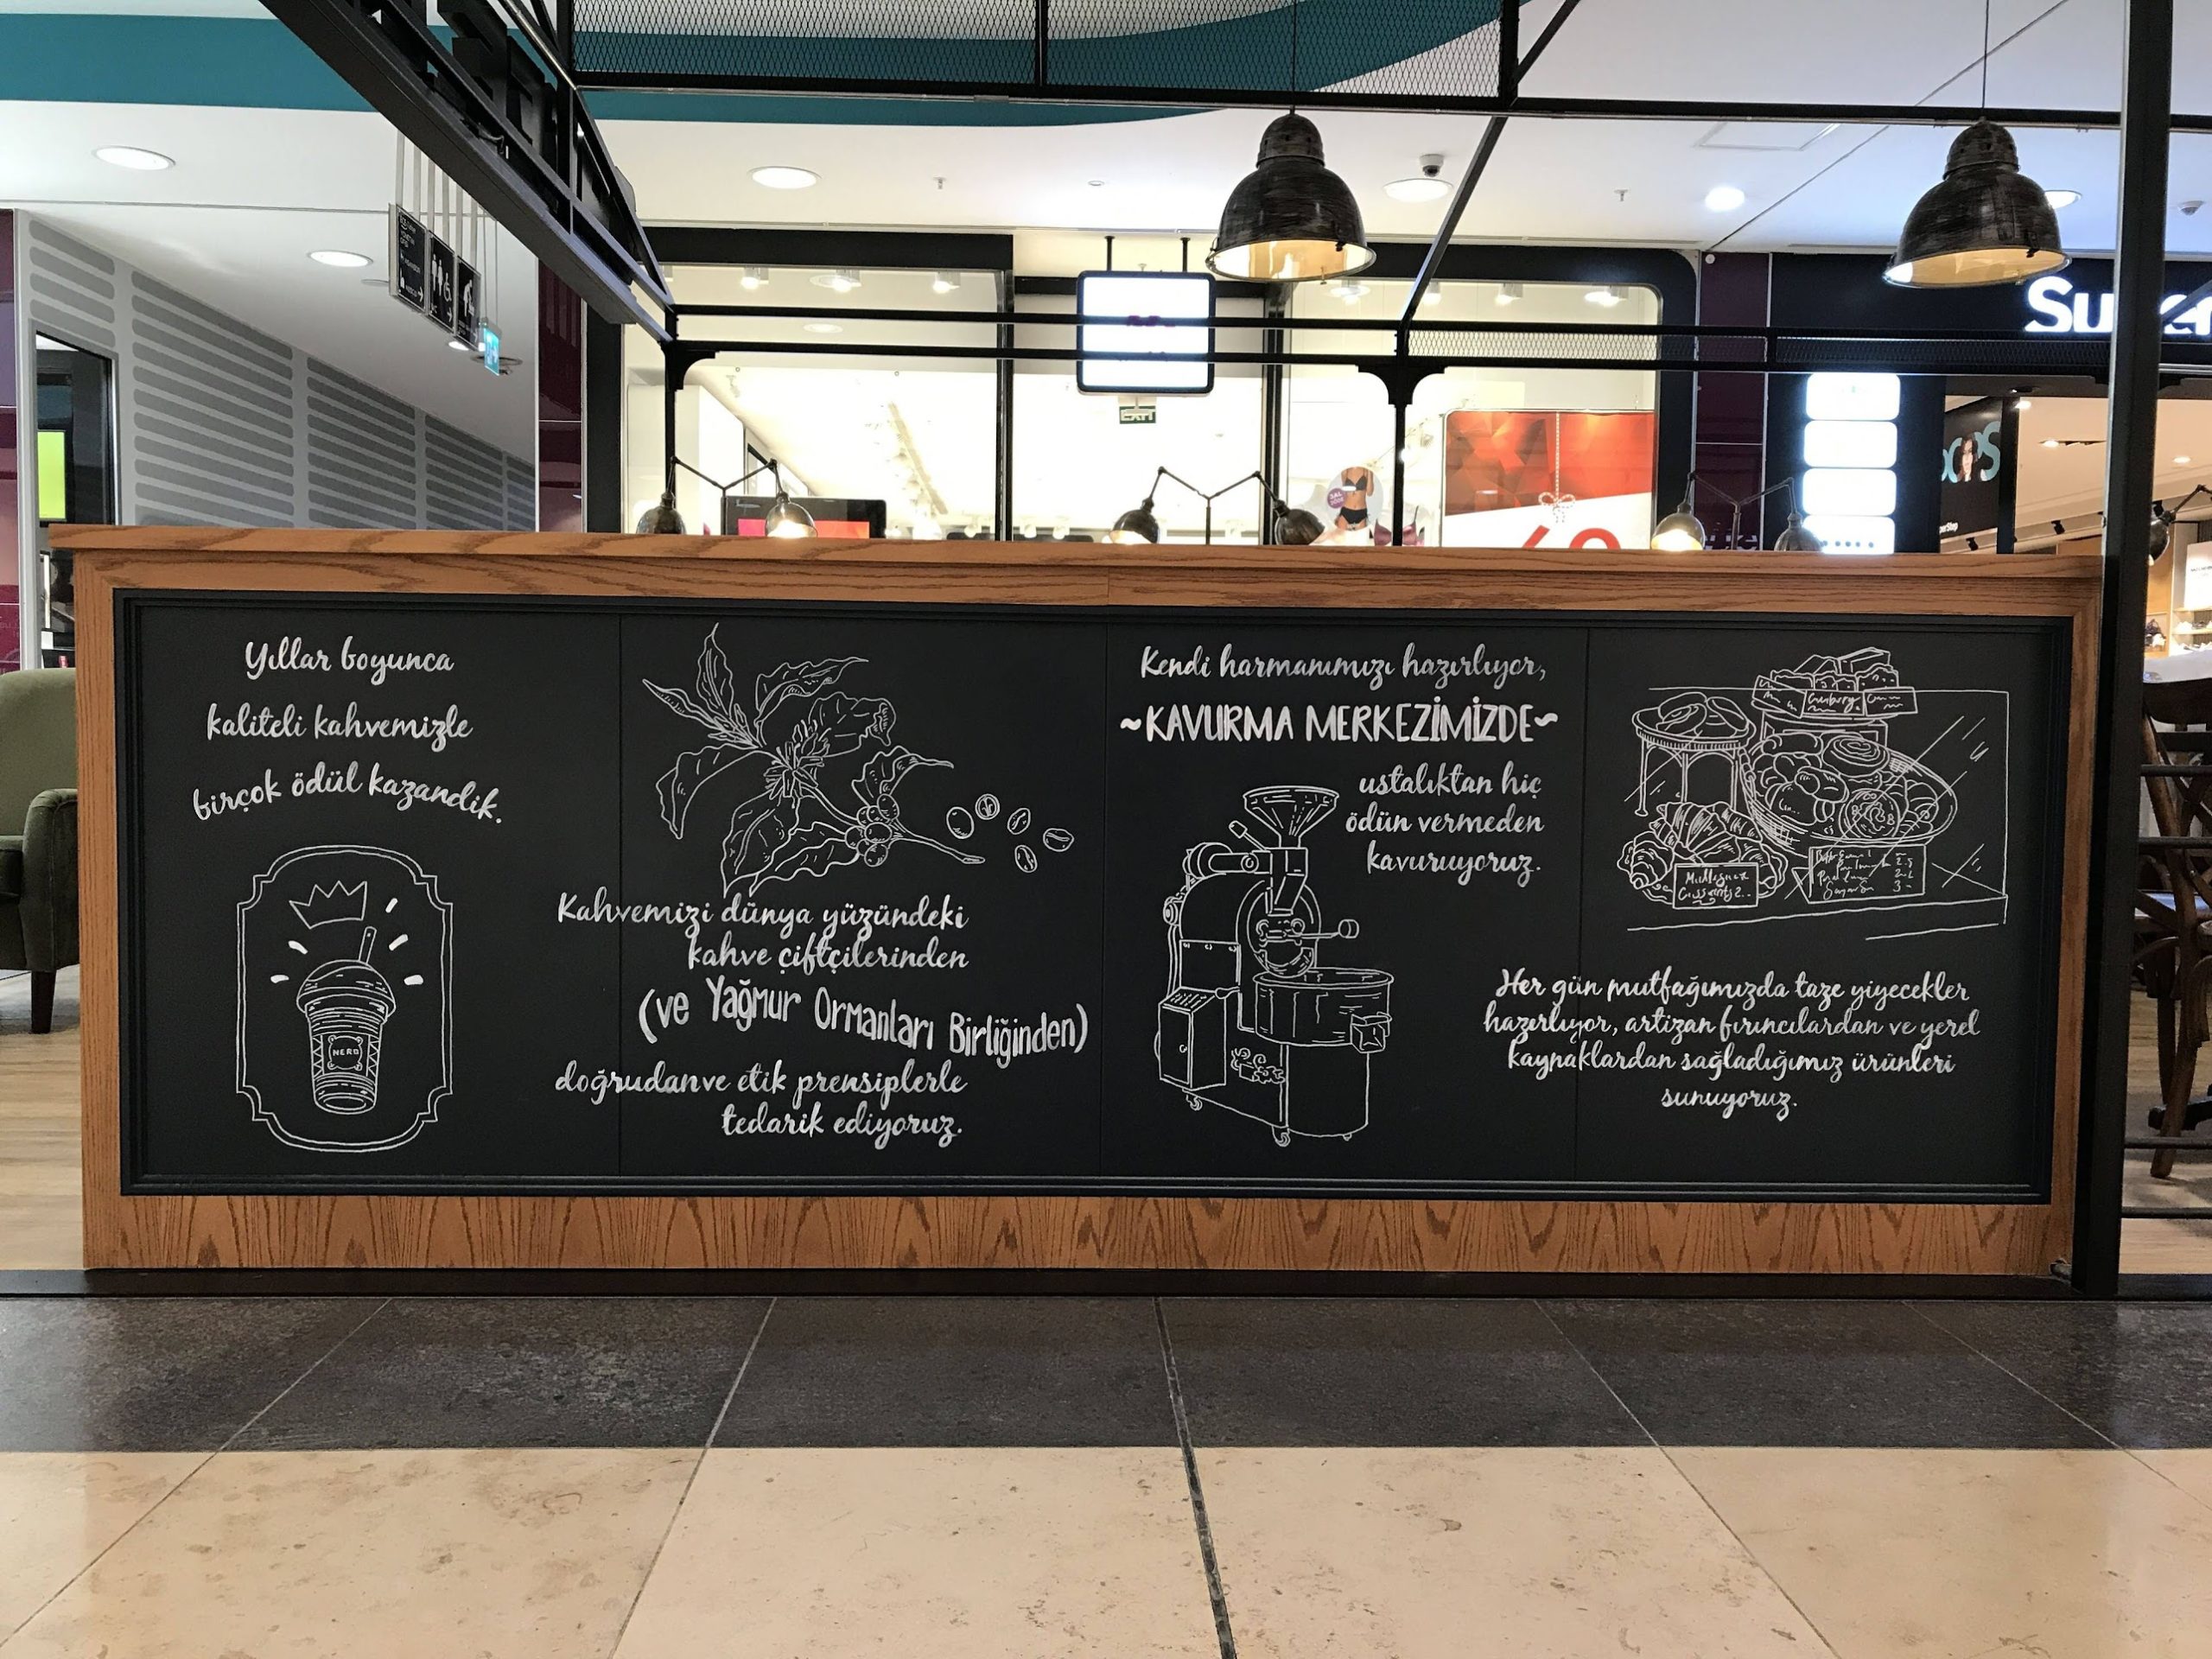 Yıllar boyunca
kaliteli kahvemizle
birçok ödül kazandık.
NERO
Kahvemizi dünya yüzündeki
kahve çiftçilerinden
(ve Yağmur Ormanları Birliğinden)
doğrudan ve etik prensiplerle
tedarik ediyoruz.
Kendi harmanımızı hazırlıyor,
~KAVURMA MERKEZİMİZDE~
ustalıktan hiç
ödün vermeden
kavuruyoruz.
Her gün mutfağımızda taze yiyecekler
hazırlıyor, artizan fırıncılardan ve yerel
kaynaklardan sağladığımız ürünleri
sunuyoruz.
EXIT